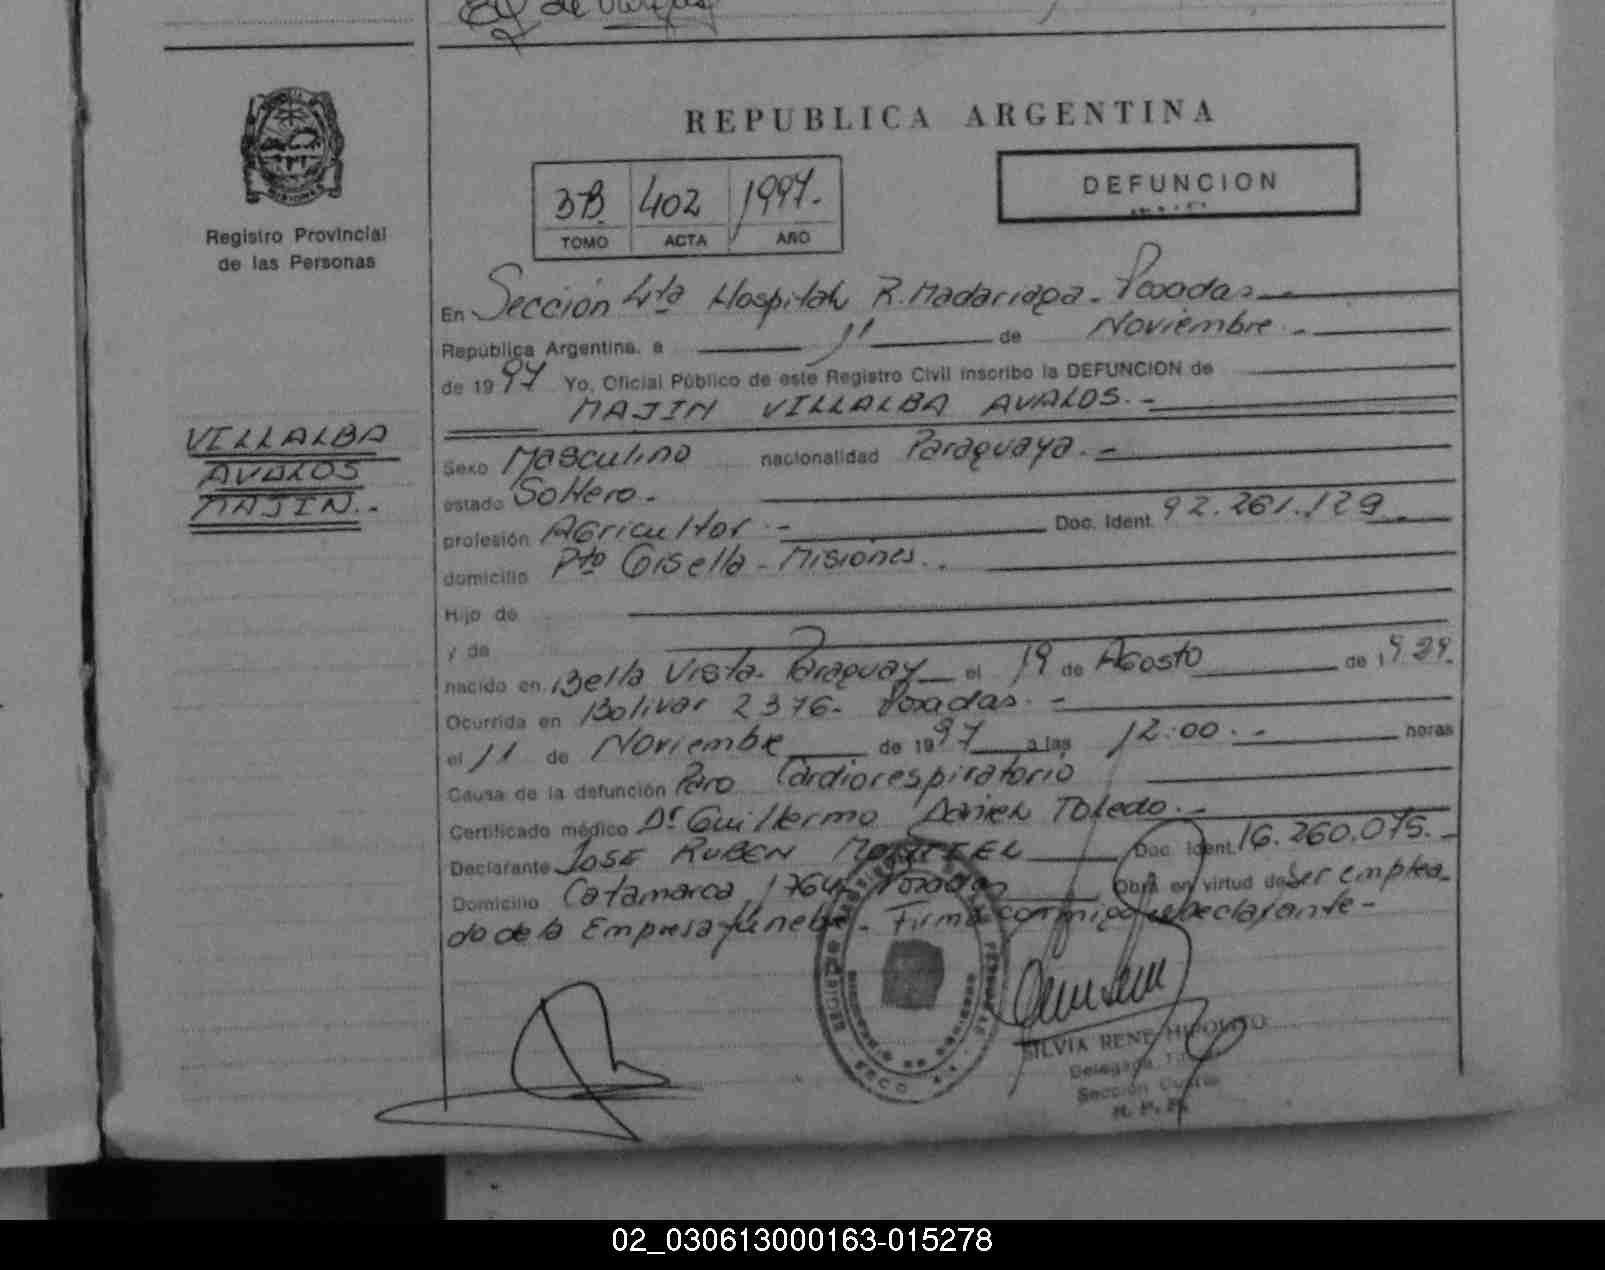 de Vargas
Registro Provincial
de las Personas
REPUBLICA ARGENTINA
3B. 402 1997.
TOMO ACTA AÑO
DEFUNCION
En Sección 4ta Hospital R. Madariaga - Posadas
República Argentina, a 11 de Noviembre.-
de 1997 Yo, Oficial Público de este Registro Civil inscribo la DEFUNCION de
MAJIN VILLALBA AVALOS.-
VILLALBA
AVALOS
MAJIN.-
Sexo Masculino nacionalidad Paraguaya.-
estado Soltero.-
profesión Agricultor.- Doc. Ident. 92.261.129
domicilio Pto Gisella - Misiones.-
Hijo de
y de
nacido en Bella Vista - Paraguay el 19 de Agosto de 1939.
Ocurrida en Bolivar 2376 - Posadas.-
el 11 de Noviembre de 1997 a las 12:00.- horas
Causa de la defunción Paro Cardiorespiratorio
Certificado médico Dr Guillermo Daniel Toledo.-
Declarante JOSE RUBEN Doc. Ident. 16.260.075.-
Domicilio Catamarca 1764 Posadas Obra en virtud de Ser emplea-
do de la Empresa fúnebre.- Firma conmigo el Declarante-
SILVIA RENE HIPOLITO
Delegada
Sección Cuarta
R. P. P.
02_030613000163-015278